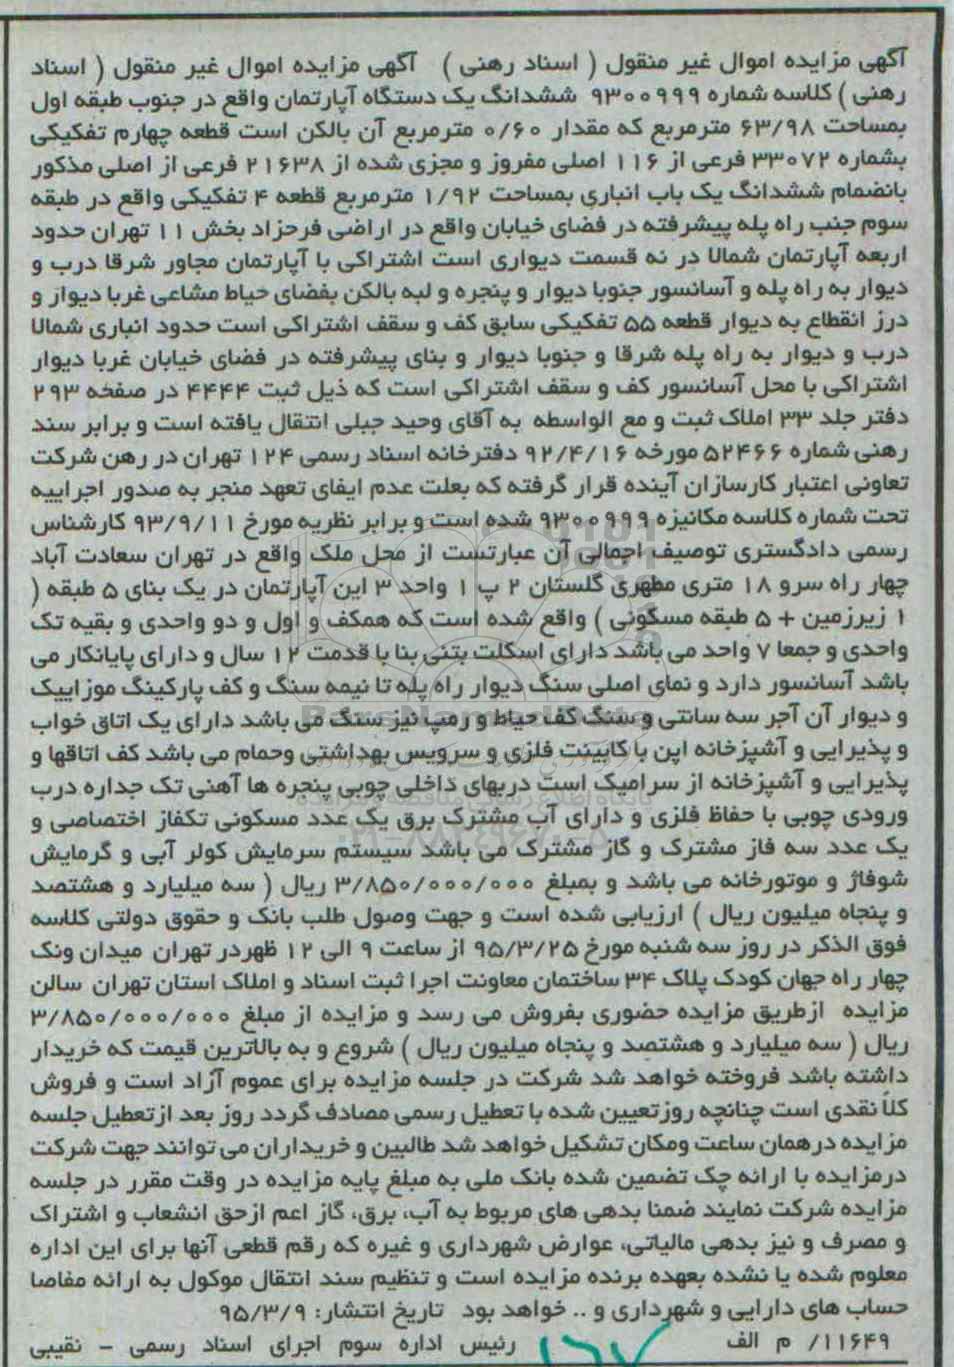 آگهی مزایده اموال غیر منقول ( اسناد رهنی ) آگهی مزایده اموال غیر منقول ( اسناد
رهنی ) کلاسه شماره ۹۳۰۰۹۹۹ ششدانگ یک دستگاه آپارتمان واقع در جنوب طبقه اول
بمساحت ۶۳/۹۸ مترمربع که مقدار ۰/۶۰ مترمربع آن بالکن است قطعه چهارم تفکیکی
بشماره ۳۳۰۷۲ فرعی از ۱۱۶ اصلی مفروز و مجزی شده از ۲۱۶۳۸ فرعی از اصلی مذکور
بانضمام ششدانگ یک باب انباری بمساحت ۱/۹۲ مترمربع قطعه ۴ تفکیکی واقع در طبقه
سوم جنب راه پله پیشرفته در فضای خیابان واقع در اراضی فرحزاد بخش ۱۱ تهران حدود
اربعه آپارتمان شمالا در نه قسمت دیواری است اشتراکی با آپارتمان مجاور شرقا درب و
دیوار به راه پله و آسانسور جنوبا دیوار و پنجره و لبه بالکن بفضای حیاط مشاعی غربا دیوار و
درز انقطاع به دیوار قطعه ۵۵ تفکیکی سابق کف و سقف اشتراکی است حدود انباری شمالا
درب و دیوار به راه پله شرقا و جنوبا دیوار و بنای پیشرفته در فضای خیابان غربا دیوار
اشتراکی با محل آسانسور کف و سقف اشتراکی است که ذیل ثبت ۴۴۴۴ در صفحه ۲۹۳
دفتر جلد ۳۳ املاک ثبت و مع الواسطه به آقای وحید جبلی انتقال یافته است و برابر سند
رهنی شماره ۵۲۴۶۶ مورخه ۹۲/۴/۱۶ دفترخانه اسناد رسمی ۱۲۴ تهران در رهن شرکت
تعاونی اعتبار کارسازان آینده قرار گرفته که بعلت عدم ایفای تعهد منجر به صدور اجراییه
تحت شماره کلاسه مکانیزه ۹۳۰۰۹۹۹ شده است و برابر نظریه مورخ ۹۳/۹/۱۱ کارشناس
رسمی دادگستری توصیف اجمالی آن عبارتست از محل ملک واقع در تهران سعادت آباد
چهار راه سرو ۱۸ متری مطهری گلستان ۲ پ ۱ واحد ۳ این آپارتمان در یک بنای ۵ طبقه (
۱ زیرزمین + ۵ طبقه مسکونی ) واقع شده است که همکف و اول و دو واحدی و بقیه تک
واحدی و جمعا ۷ واحد می باشد دارای اسکلت بتنی بنا با قدمت ۱۲ سال و دارای پایانکار می
باشد آسانسور دارد و نمای اصلی سنگ دیوار راه پله تا نیمه سنگ و کف پارکینگ موزاییک
و دیوار آن آجر سه سانتی و سنگ کف حیاط و رمپ نیز سنگ می باشد دارای یک اتاق خواب
و پذیرایی و آشپزخانه اپن با کابینت فلزی و سرویس بهداشتی وحمام می باشد کف اتاقها و
پذیرایی و آشپزخانه از سرامیک است دربهای داخلی چوبی پنجره ها آهنی تک جداره درب
ورودی چوبی با حفاظ فلزی و دارای آب مشترک برق یک عدد مسکونی تکفاز اختصاصی و
یک عدد سه فاز مشترک و گاز مشترک می باشد سیستم سرمایش کولر آبی و گرمایش
شوفاژ و موتورخانه می باشد و بمبلغ ۳/۸۵۰/۰۰۰/۰۰۰ ریال ( سه میلیارد و هشتصد
و پنجاه میلیون ریال ) ارزیابی شده است و جهت وصول طلب بانک و حقوق دولتی کلاسه
فوق الذکر در روز سه شنبه مورخ ۹۵/۳/۲۵ از ساعت ۹ الی ۱۲ ظهردر تهران میدان ونک
چهار راه جهان کودک پلاک ۳۴ ساختمان معاونت اجرا ثبت اسناد و املاک استان تهران سالن
مزایده ازطریق مزایده حضوری بفروش می رسد و مزایده از مبلغ ۳/۸۵۰/۰۰۰/۰۰۰
ریال ( سه میلیارد و هشتصد و پنجاه میلیون ریال ) شروع و به بالاترین قیمت که خریدار
داشته باشد فروخته خواهد شد شرکت در جلسه مزایده برای عموم آزاد است و فروش
کلاً نقدی است چنانچه روزتعیین شده با تعطیل رسمی مصادف گردد روز بعد ازتعطیل جلسه
مزایده درهمان ساعت ومکان تشکیل خواهد شد طالبین و خریداران می توانند جهت شرکت
درمزایده با ارائه چک تضمین شده بانک ملی به مبلغ پایه مزایده در وقت مقرر در جلسه
مزایده شرکت نمایند ضمنا بدهی های مربوط به آب، برق، گاز اعم ازحق انشعاب و اشتراک
و مصرف و نیز بدهی مالیاتی، عوارض شهرداری و غیره که رقم قطعی آنها برای این اداره
معلوم شده یا نشده بعهده برنده مزایده است و تنظیم سند انتقال موکول به ارائه مفاصا
حساب های دارایی و شهرداری و .. خواهد بود تاریخ انتشار: ۹۵/۳/۹
۱۱۶۴۹/ م الف رئیس اداره سوم اجرای اسناد رسمی - نقیبی
۱۶۷